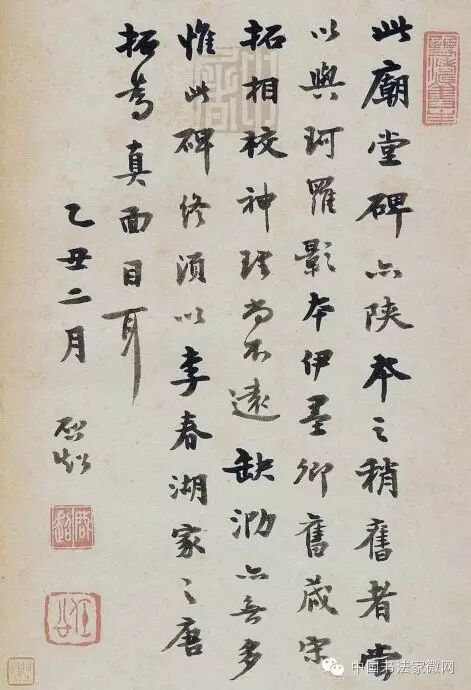 此廟堂碑亦陝本之稍舊者嘗
以與珂羅影本伊墨卿舊藏宋
拓相校神理尚不遠缺泐亦無多
惟此碑終須以李春湖家之唐
拓爲真面目耳
乙丑二月
啟功
中国书法家微网